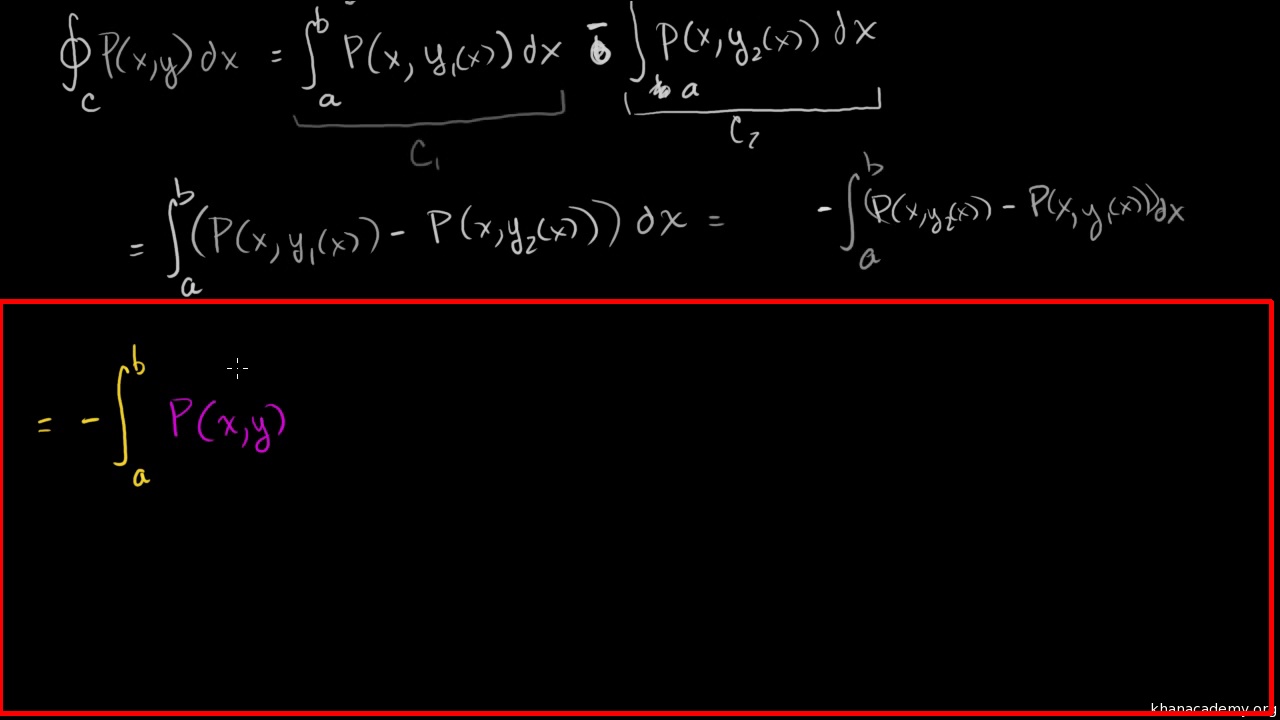 ∮_C P(x,y) dx = ∫_a^b P(x, y₁(x)) dx - ∫_a P(x, y₂(x)) dx
C₁ C₂
= ∫_a^b (P(x, y₁(x)) - P(x, y₂(x))) dx = - ∫_a^b (P(x, y₂(x)) - P(x, y₁(x))) dx
= - ∫_a^b P(x,y)
khanacademy.org